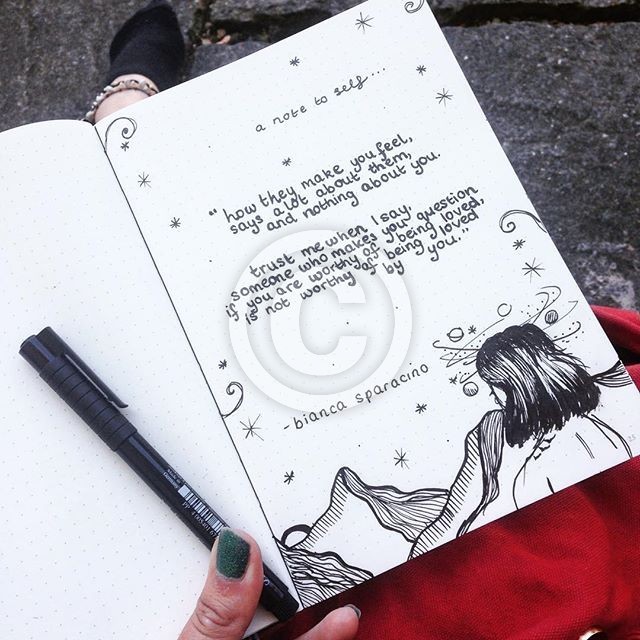 a note to self...
"how they make you feel,
says a lot about them,
and nothing about you.
trust me when I say,
if someone who makes you question
if you are worthy of being loved,
is not worthy of being loved
by you."
- bianca sparacino
©